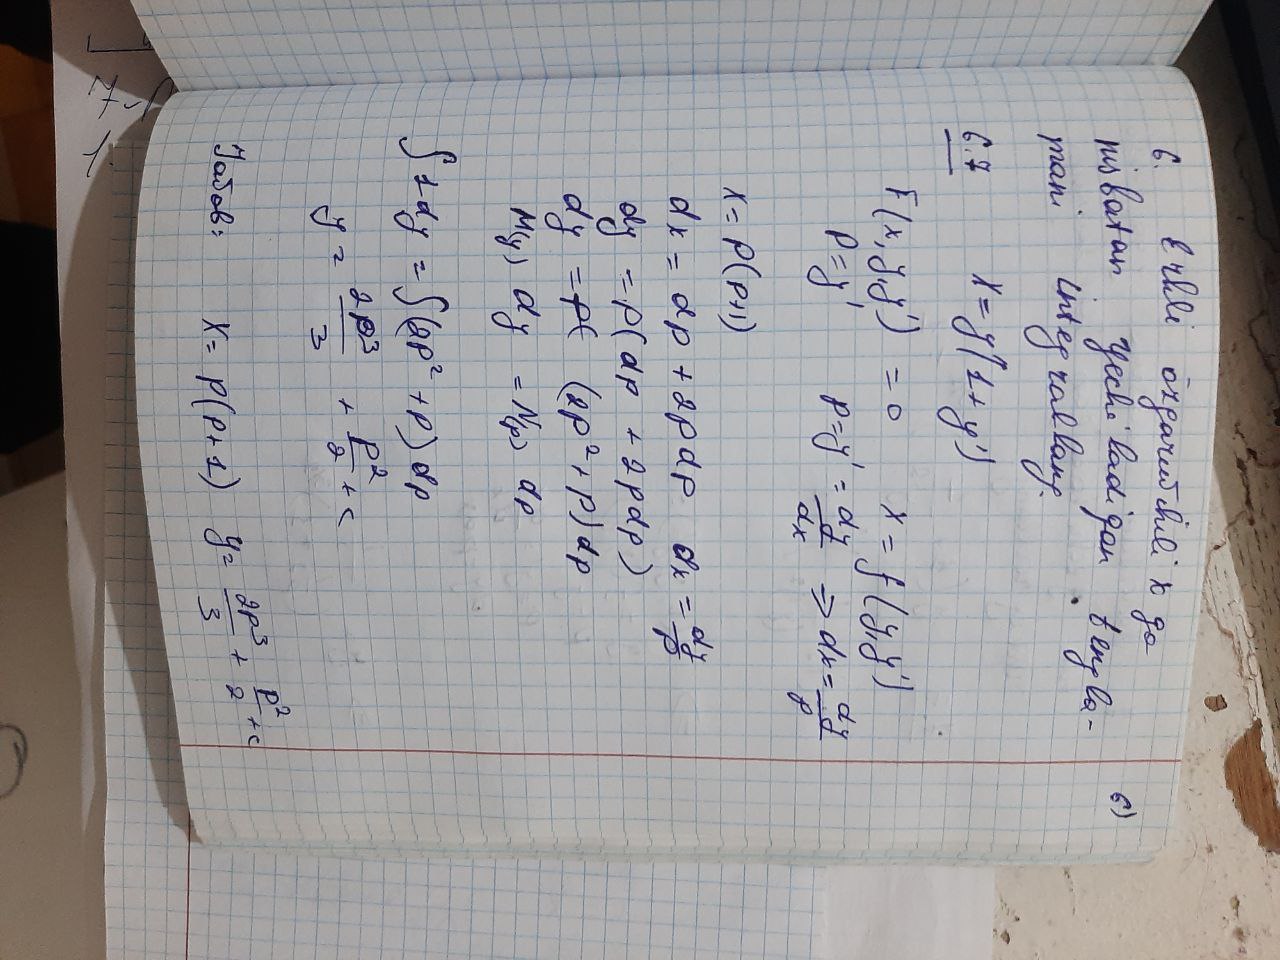 6)
6. Erkli o'zgaruvchili x ga
nisbatan yechiladigan tengla-
mani integrallang.
6.7 x = y'(1+y')
F(x,y,y') = 0 x = f(y,y')
p=y' p=y' = dy/dx ⇒ dx = dy/p
x = p(p+1)
dx = dp + 2p dp dx = dy/p
dy = p(dp + 2pdp)
dy = (2p² + p)dp
M(y) dy = N(p) dp
∫1·dy = ∫(2p² + p)dp
y = 2p³/3 + p²/2 + c
Javob: x = p(p+1) y = 2p³/3 + p²/2 + c